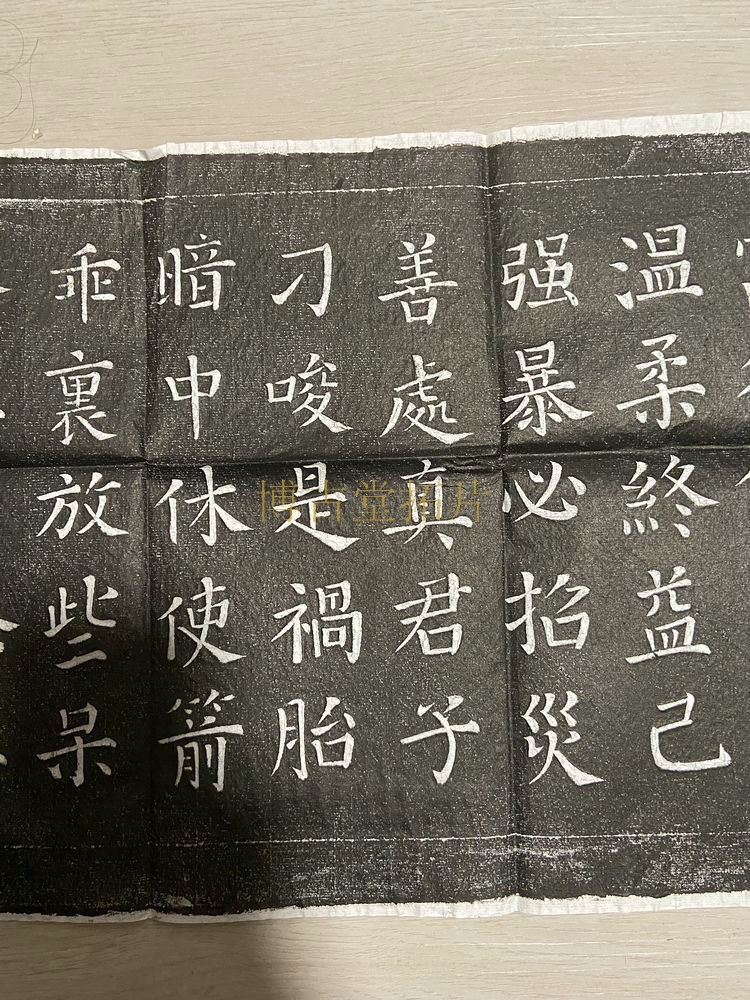 温柔終益己
强暴必招災
善處真君子
刁唆是禍胎
暗中休使箭
乖裏放些呆
博古堂图片